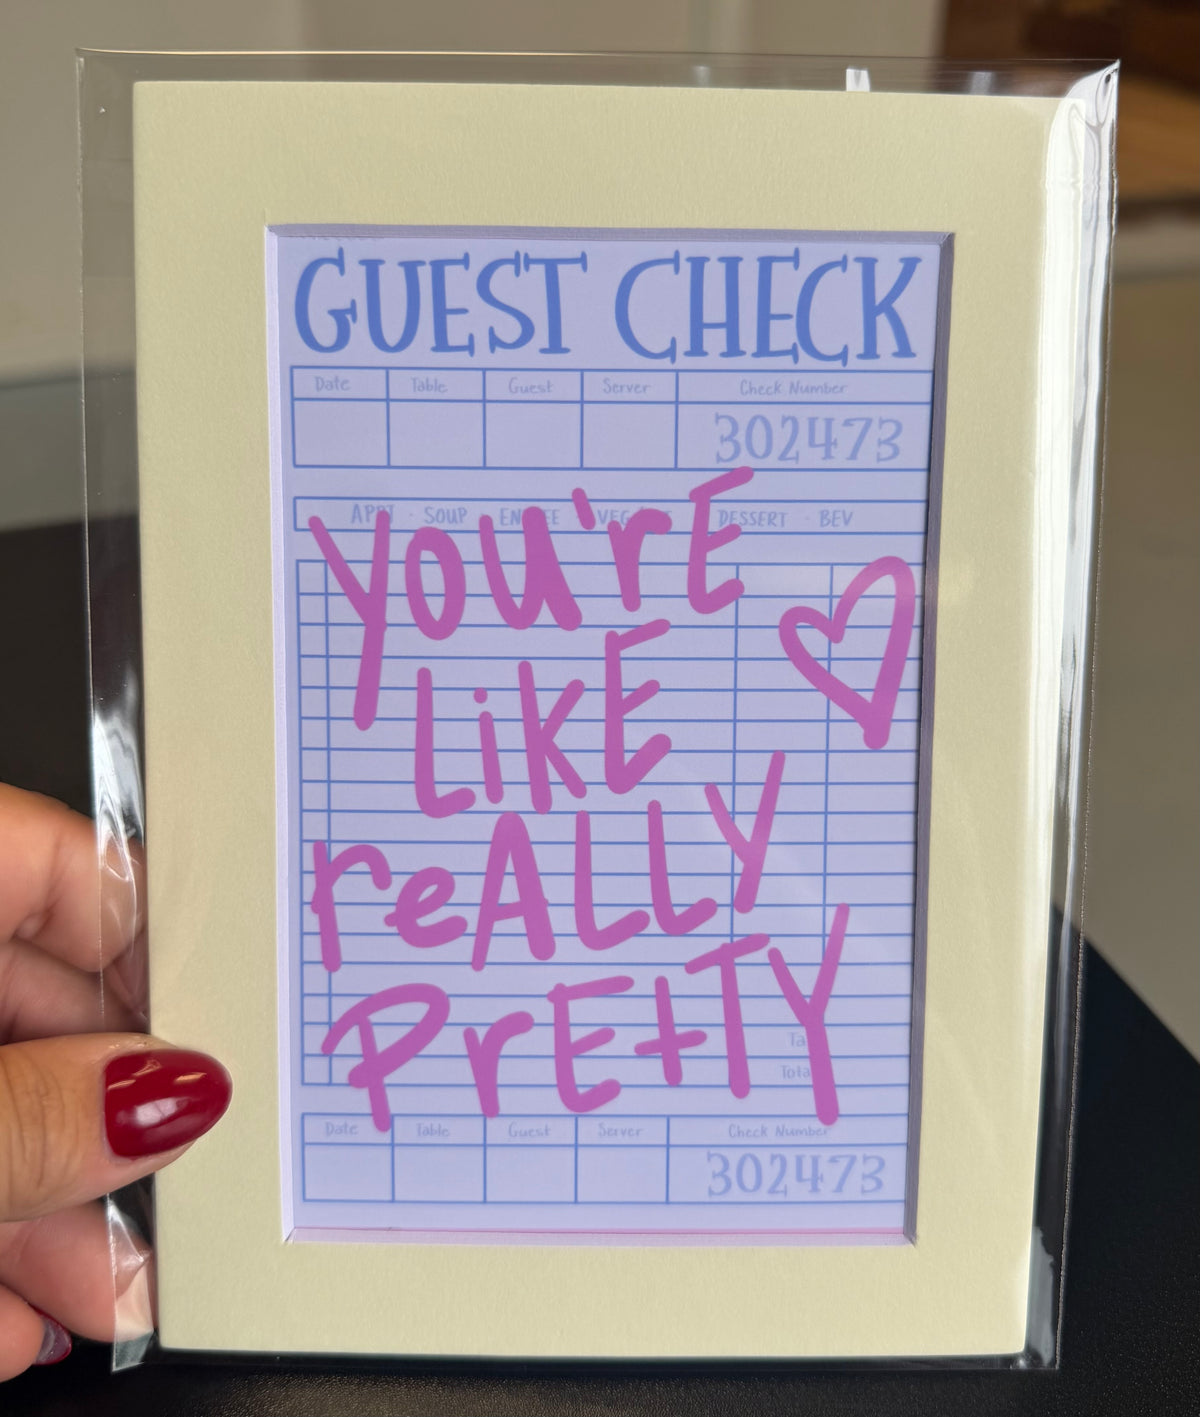 GUEST CHECK
Date Table Guest Server Check Number
302473
SOUP DESSERT - BEV
you'rE
LiKE
reALLY
PrEtTY
Date Table Guest Server Check Number
302473